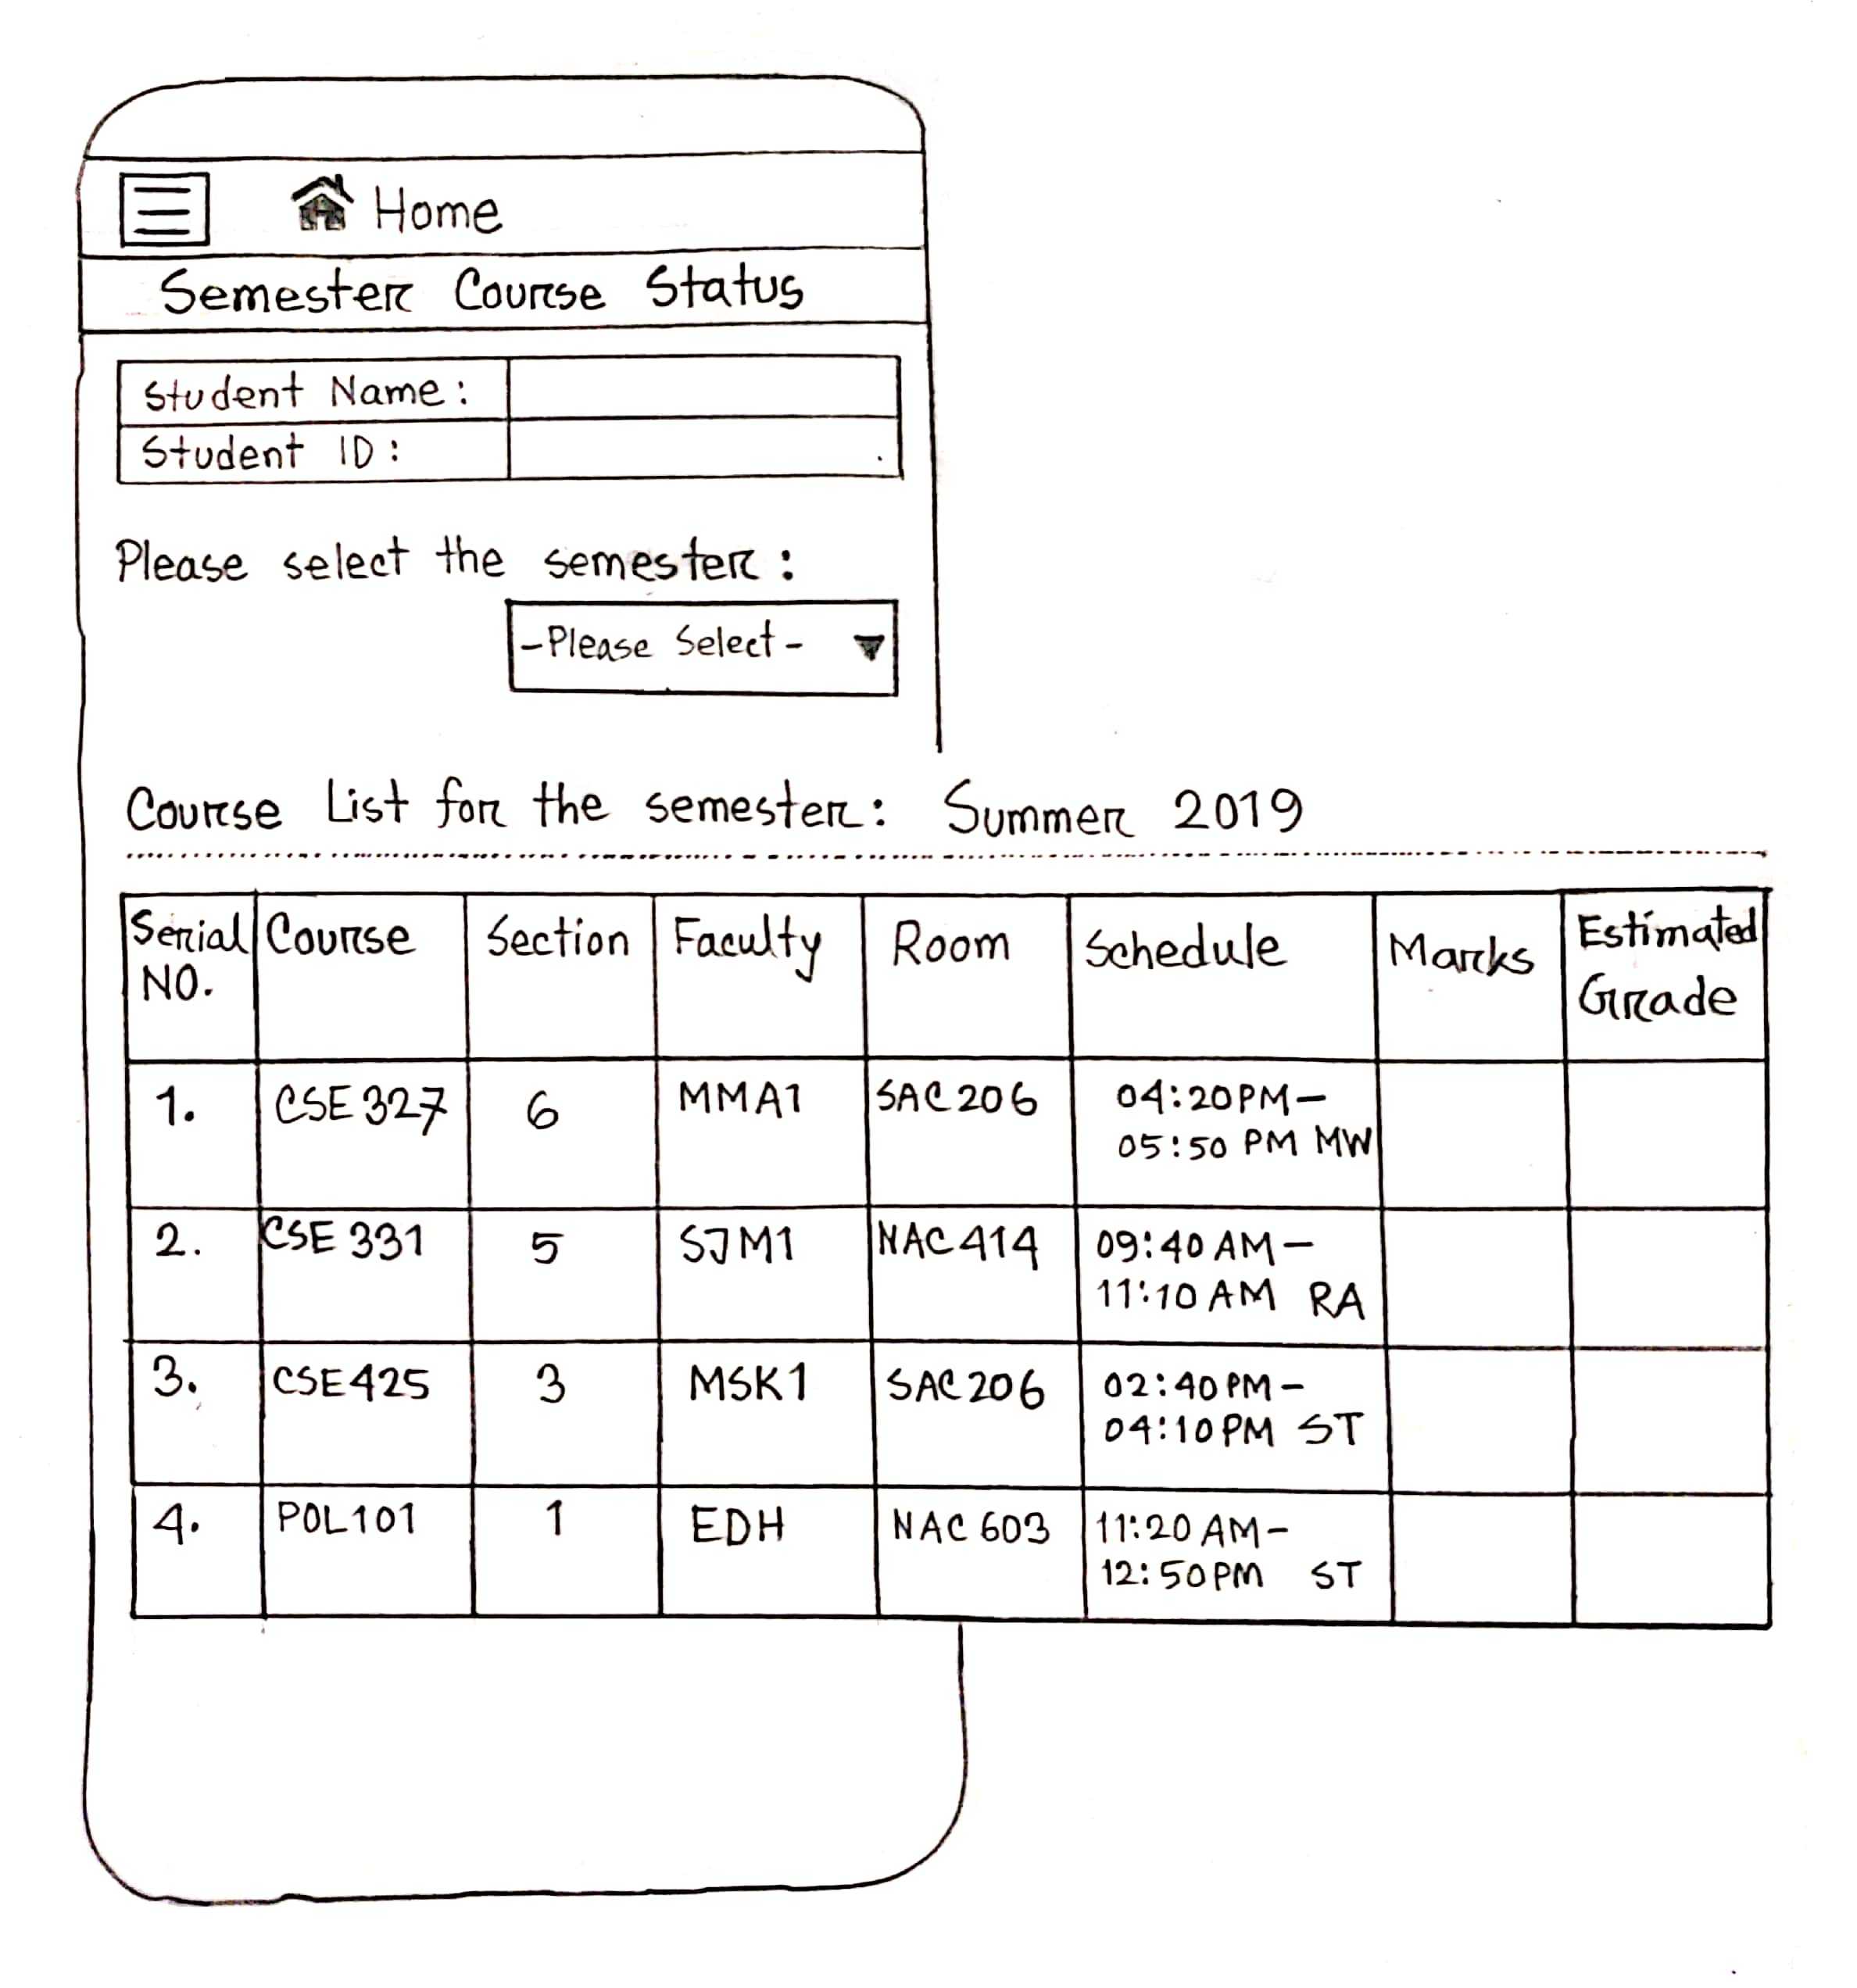 Home
Semester Course Status
Student Name:
Student ID:
Please select the semester:
-Please Select-
Course List for the semester: Summer 2019
Serial NO. Course Section Faculty Room Schedule Marks Estimated Grade
1. CSE327 6 MMA1 SAC206 04:20PM-
05:50 PM MW
2. CSE 331 5 SJM1 NAC414 09:40 AM-
11:10 AM RA
3. CSE425 3 MSK1 SAC206 02:40PM-
04:10PM ST
4. POL101 1 EDH NAC603 11:20 AM-
12:50PM ST